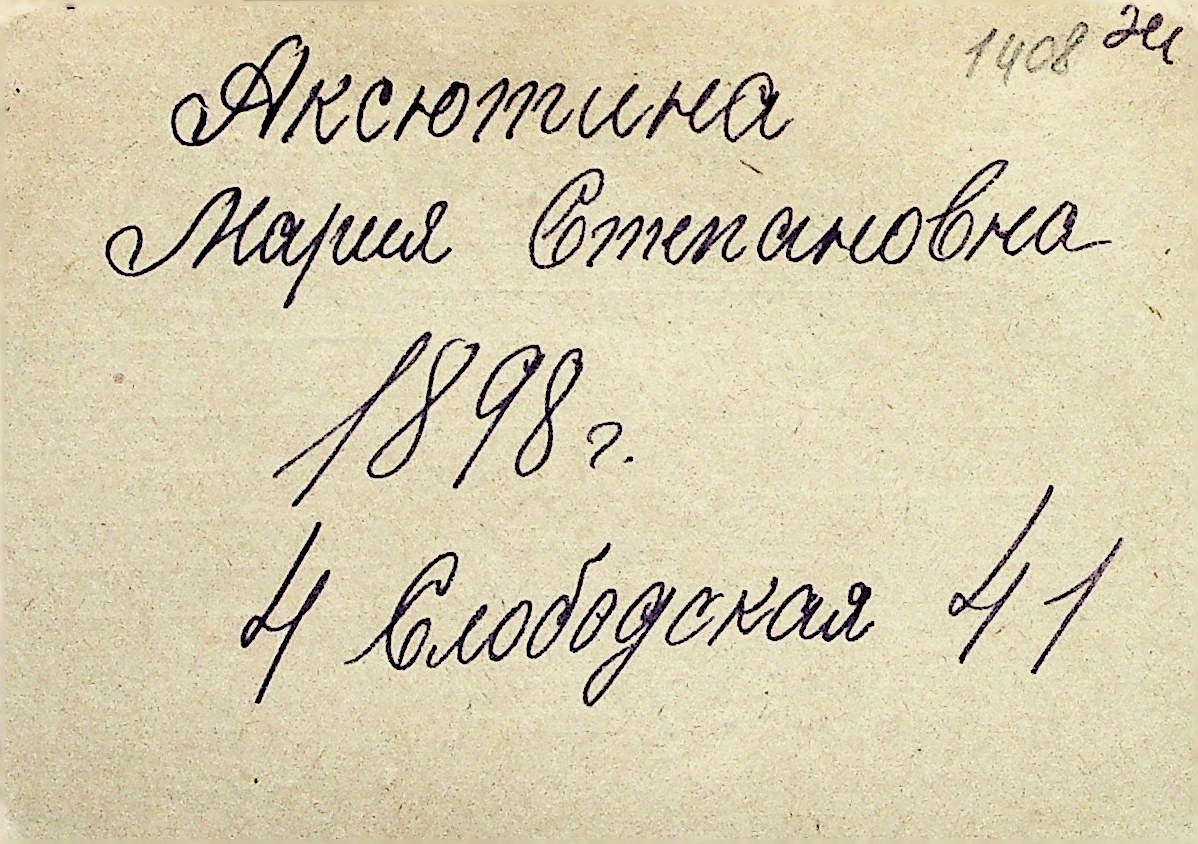 1408 Эи
Аксютина
Мария Степановна
1898 г.
4 Слободская 41